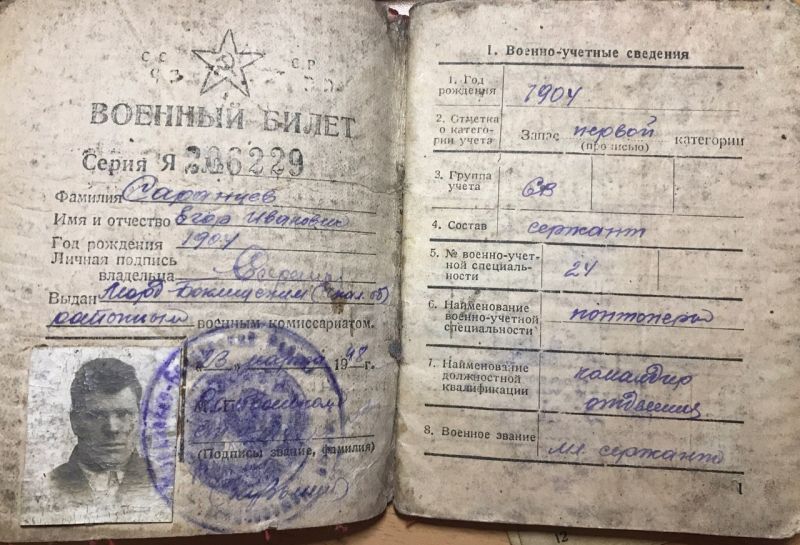 С С С Р
ВОЕННЫЙ БИЛЕТ
Серия Я 206229
Фамилия Саранцев
Имя и отчество Егор Иванович
Год рождения 1904
Личная подпись
владельца
Выдан Морд-Боклинским
районным военным комиссариатом.
„23“ марта 1948 г.
М.П.
(Подпись, звание, фамилия)
1. Военно-учетные сведения
1. Год
рождения 1904
2. Отметка
о катего-
рии учета Запас первой категории
(прописью)
3. Группа
учета СВ
4. Состав сержант
5. № военно-учет-
ной специаль-
ности 24
6. Наименование
военно-учетной
специальности понтонеры
7. Наименование
должностной
квалификации командир
отделения
8. Военное звание мл. сержант
1
12